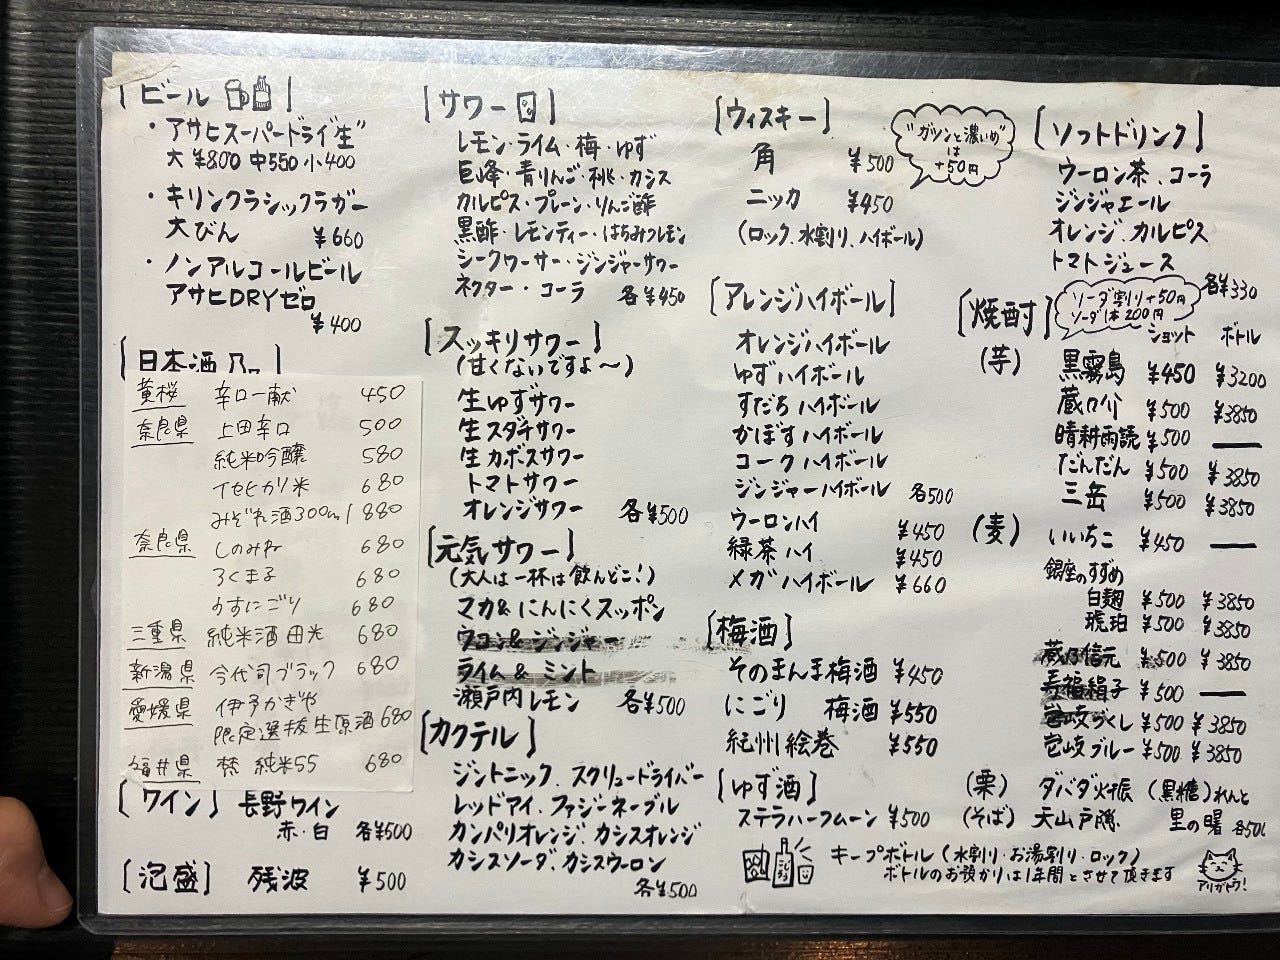 [ビール]
・アサヒスーパードライ"生"
大 ¥800 中550 小400
・キリンクラシックラガー
大びん ¥660
・ノンアルコールビール
アサヒDRYゼロ
¥400
[日本酒]
黄桜 辛口一献 450
奈良県 上田辛口 500
純米吟醸 580
イセヒカリ米 680
みぞれ酒300ml 880
奈良県 しのみね 680
ろくまる 680
うすにごり 680
三重県 純米酒 田光 680
新潟県 今代司ブラック 680
愛媛県 伊予かぎや
限定選抜生原酒 680
福井県 梵 純米55 680
[ワイン] 長野ワイン
赤・白 各¥500
[泡盛] 残波 ¥500
[サワー]
レモン・ライム・梅・ゆず
巨峰・青りんご・桃・カシス
カルピス・プレーン・りんご酢
黒酢・レモンティー・はちみつレモン
シークワーサー・ジンジャーサワー
ネクター・コーラ 各¥450
[スッキリサワー]
(甘くないですよ〜)
生ゆずサワー
生スダチサワー
生カボスサワー
トマトサワー
オレンジサワー 各¥500
[元気サワー]
(大人は一杯は飲んどこ!)
マカ&にんにくスッポン
ウコン&ジンジャー
ライム&ミント
瀬戸内レモン 各¥500
[カクテル]
ジントニック、スクリュードライバー
レッドアイ、ファジーネーブル
カンパリオレンジ、カシスオレンジ
カシスソーダ、カシスウーロン
各¥500
[ウィスキー]
角 ¥500
ニッカ ¥450
(ロック、水割り、ハイボール)
"ガツンと濃いめ"
は
+50円
[アレンジハイボール]
オレンジハイボール
ゆずハイボール
すだちハイボール
かぼすハイボール
コークハイボール
ジンジャーハイボール 各500
ウーロンハイ ¥450
緑茶ハイ ¥450
メガハイボール ¥660
[梅酒]
そのまんま梅酒 ¥450
にごり 梅酒 ¥550
紀州絵巻 ¥550
[ゆず酒]
ステラハーフムーン ¥500
[ソフトドリンク]
ウーロン茶、コーラ
ジンジャエール
オレンジ、カルピス
トマトジュース
各¥330
[焼酎]
ソーダ割り+50円
ソーダ1本200円
ショット ボトル
(芋) 黒霧島 ¥450 ¥3200
蔵の介 ¥500 ¥3850
晴耕雨読 ¥500 ー
だんだん ¥500 ¥3850
三岳 ¥500 ¥3850
(麦) いいちこ ¥450 ー
銀座のすずめ
白麹 ¥500 ¥3850
琥珀 ¥500 ¥3850
蔵乃信元 ¥500 ¥3850
寿福絹子 ¥500 ー
壱岐づくし ¥500 ¥3850
壱岐ブルー ¥500 ¥3850
(栗) ダバダ火振 (黒糖)れんと
(そば) 天山戸隠 里の曙 各500
キープボトル(水割り・お湯割り・ロック)
ボトルのお預かりは1年間とさせて頂きます
アリガトウ!